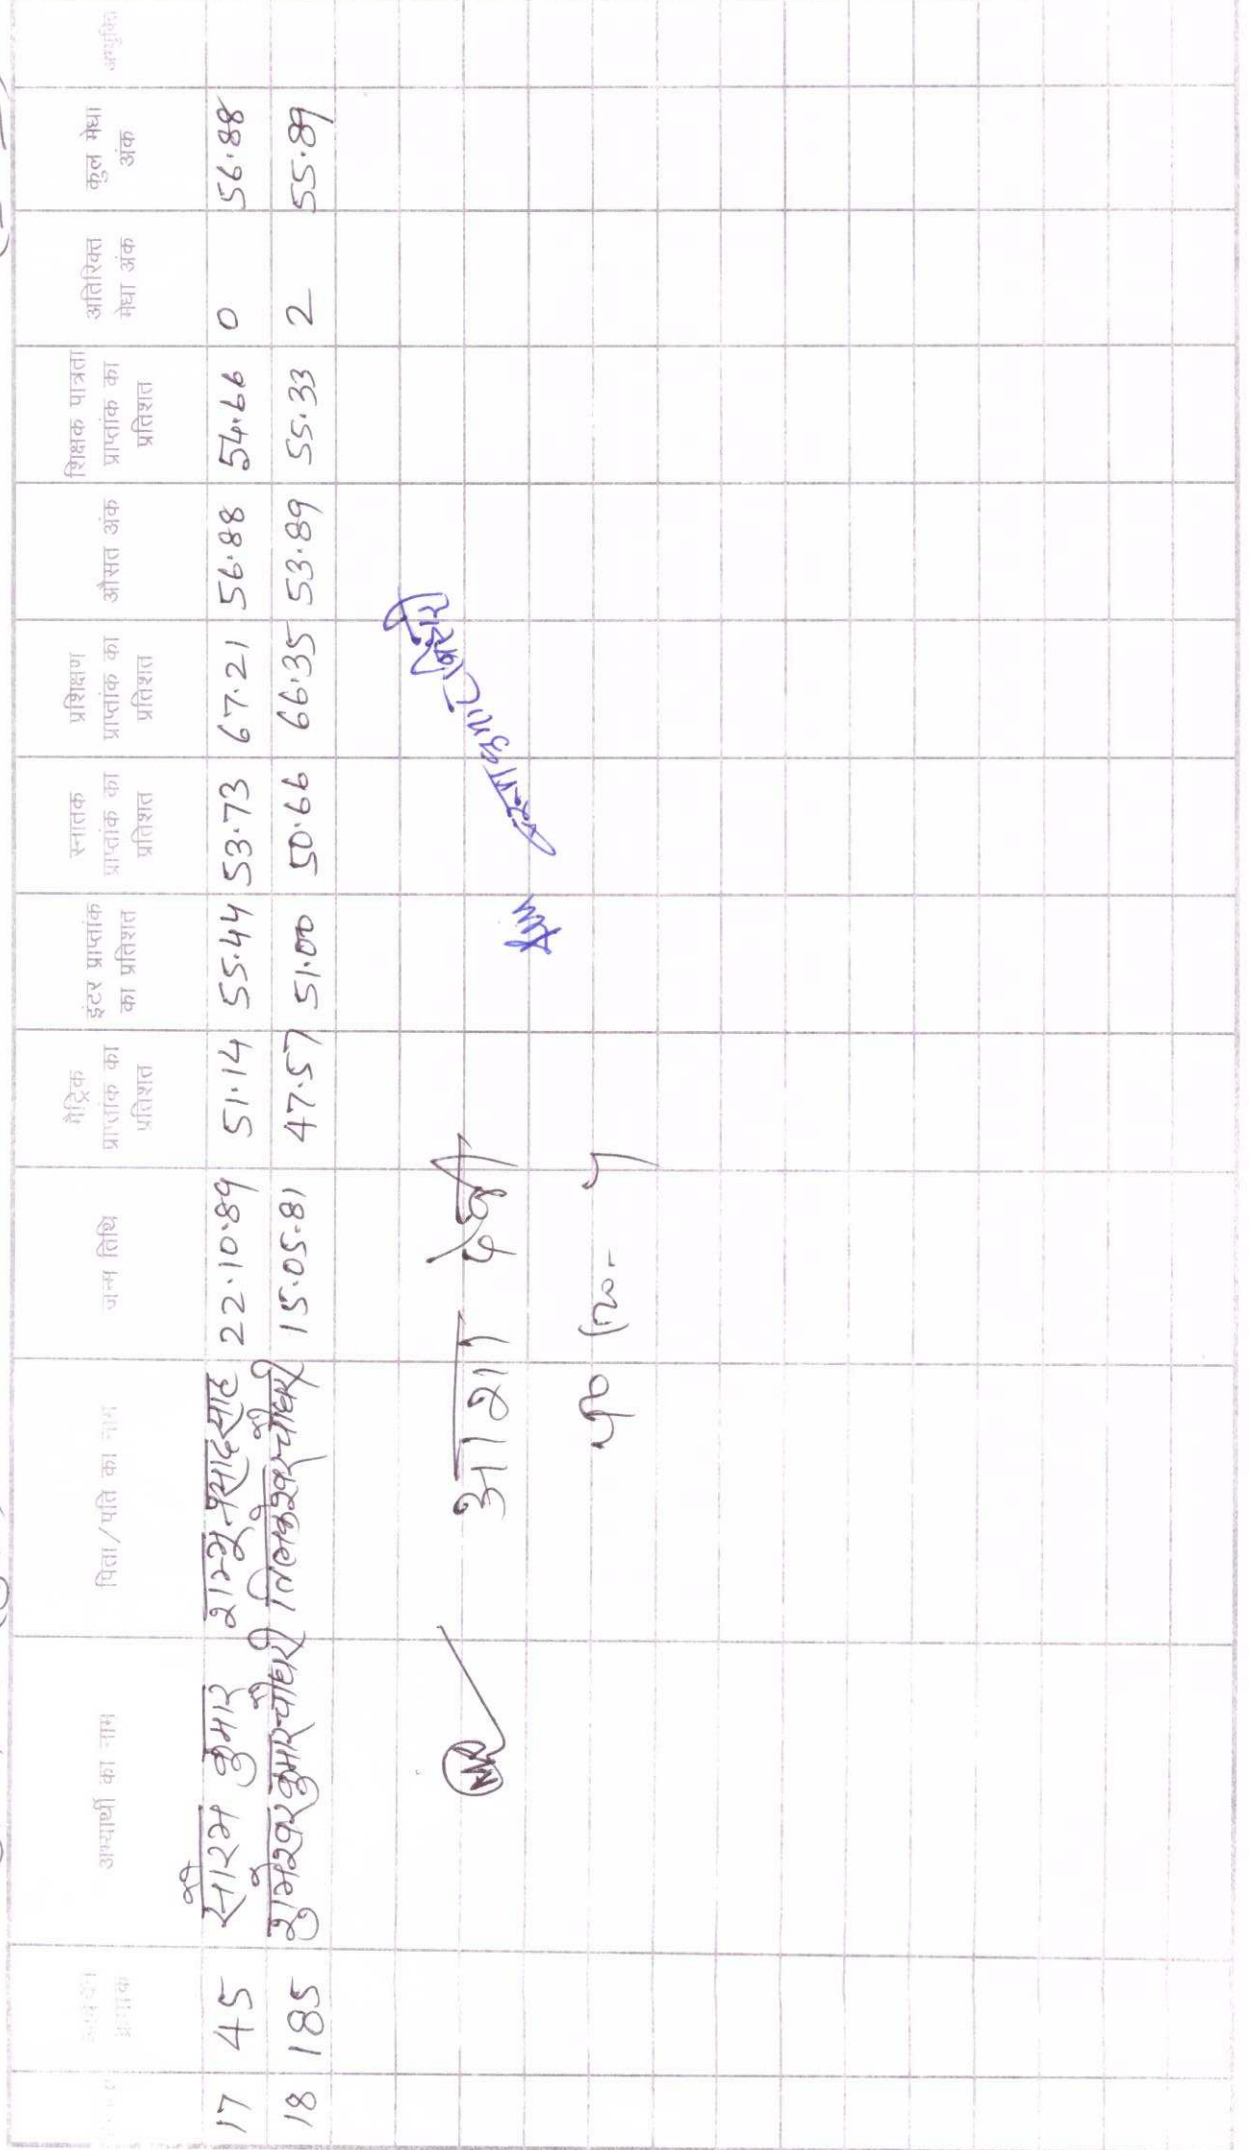 अभ्यर्थी का नाम पिता / पति का नाम जन्म तिथि मैट्रिक प्राप्तांक का प्रतिशत इंटर प्राप्तांक का प्रतिशत स्नातक प्राप्तांक का प्रतिशत प्रशिक्षण प्राप्तांक का प्रतिशत औसत अंक शिक्षक पात्रता प्राप्तांक का प्रतिशत अतिरिक्त मेधा अंक कुल मेधा अंक अभ्युक्ति
17 45 सौरभ कुमार शम्भू प्रसाद साह 22.10.89 51.14 55.44 53.73 67.21 56.88 54.66 0 56.88
18 185 शुभेश्वर कुमार चौधरी तिलकेश्वर चौधरी 15.05.81 47.57 51.00 50.66 66.35 53.89 55.33 2 55.89
आशा देवी